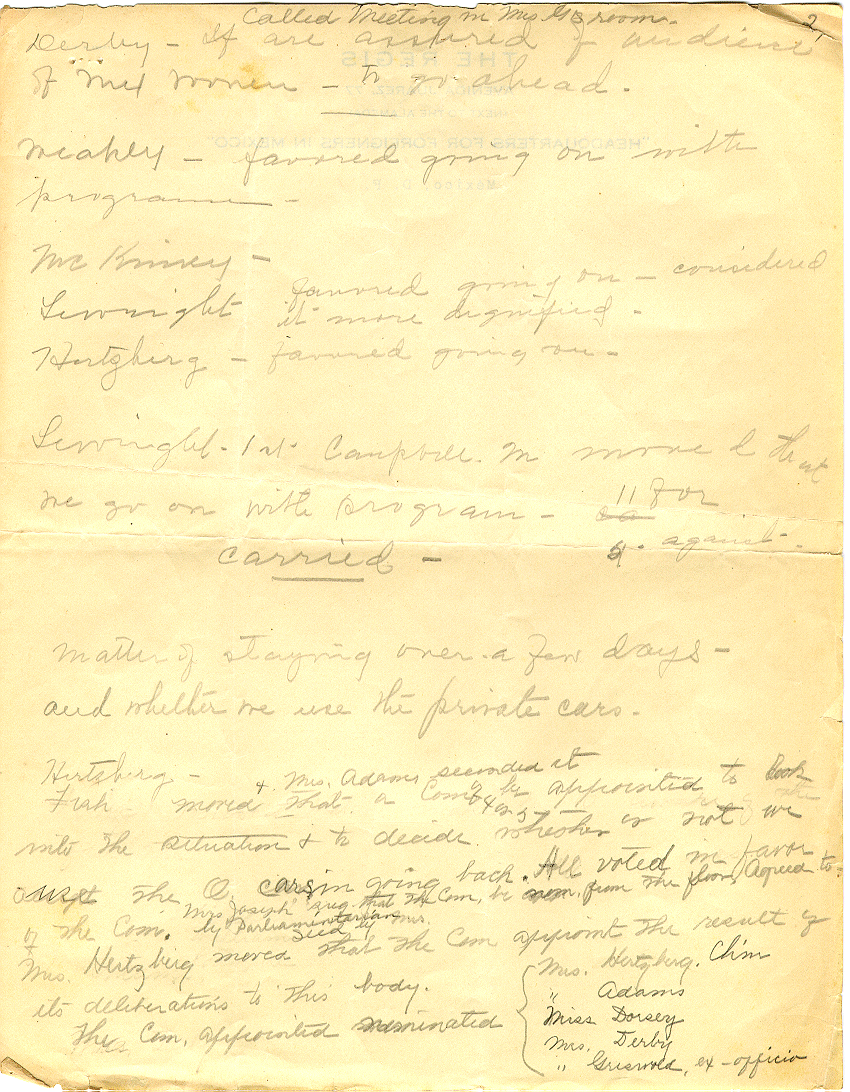 Called Meeting in Mrs G's room.
2
Derby - If are assured of audience
of Mex women - to go ahead.
THE REGIS
"HEADQUARTERS FOR FOREIGNERS IN MEXICO"
Mexico D. F.
Weakley - favored going on with
program -
McKinney -
favored going on - considered
Sevright it more dignified -
Hertzberg - favored going on -
Sevright - 1st Campbell. M moved that
we go on with program - 11 For
4 - against -
carried -
matter of staying over a few days -
and whether we use the private cars -
Hertzberg -
+ Mrs. Adams seconded it
Fish moved that a Com. be appointed to look
of 4 or 5
into the situation + to decide whether or not we
use the cars in going back. All voted in favor
of the Com. Mrs Joseph sug. that the Com. be nom. from the floor. Agreed to.
by Parliamentarian
Sec'd by Mrs.
Mrs. Hertzberg moved that the Com appoint the result of
its deliberations to this body.
The Com. appointed nominated
Mrs. Hertzberg, Ch'm
" Adams
Miss Dorsey
Mrs. Derby
" Griswold, ex-officio